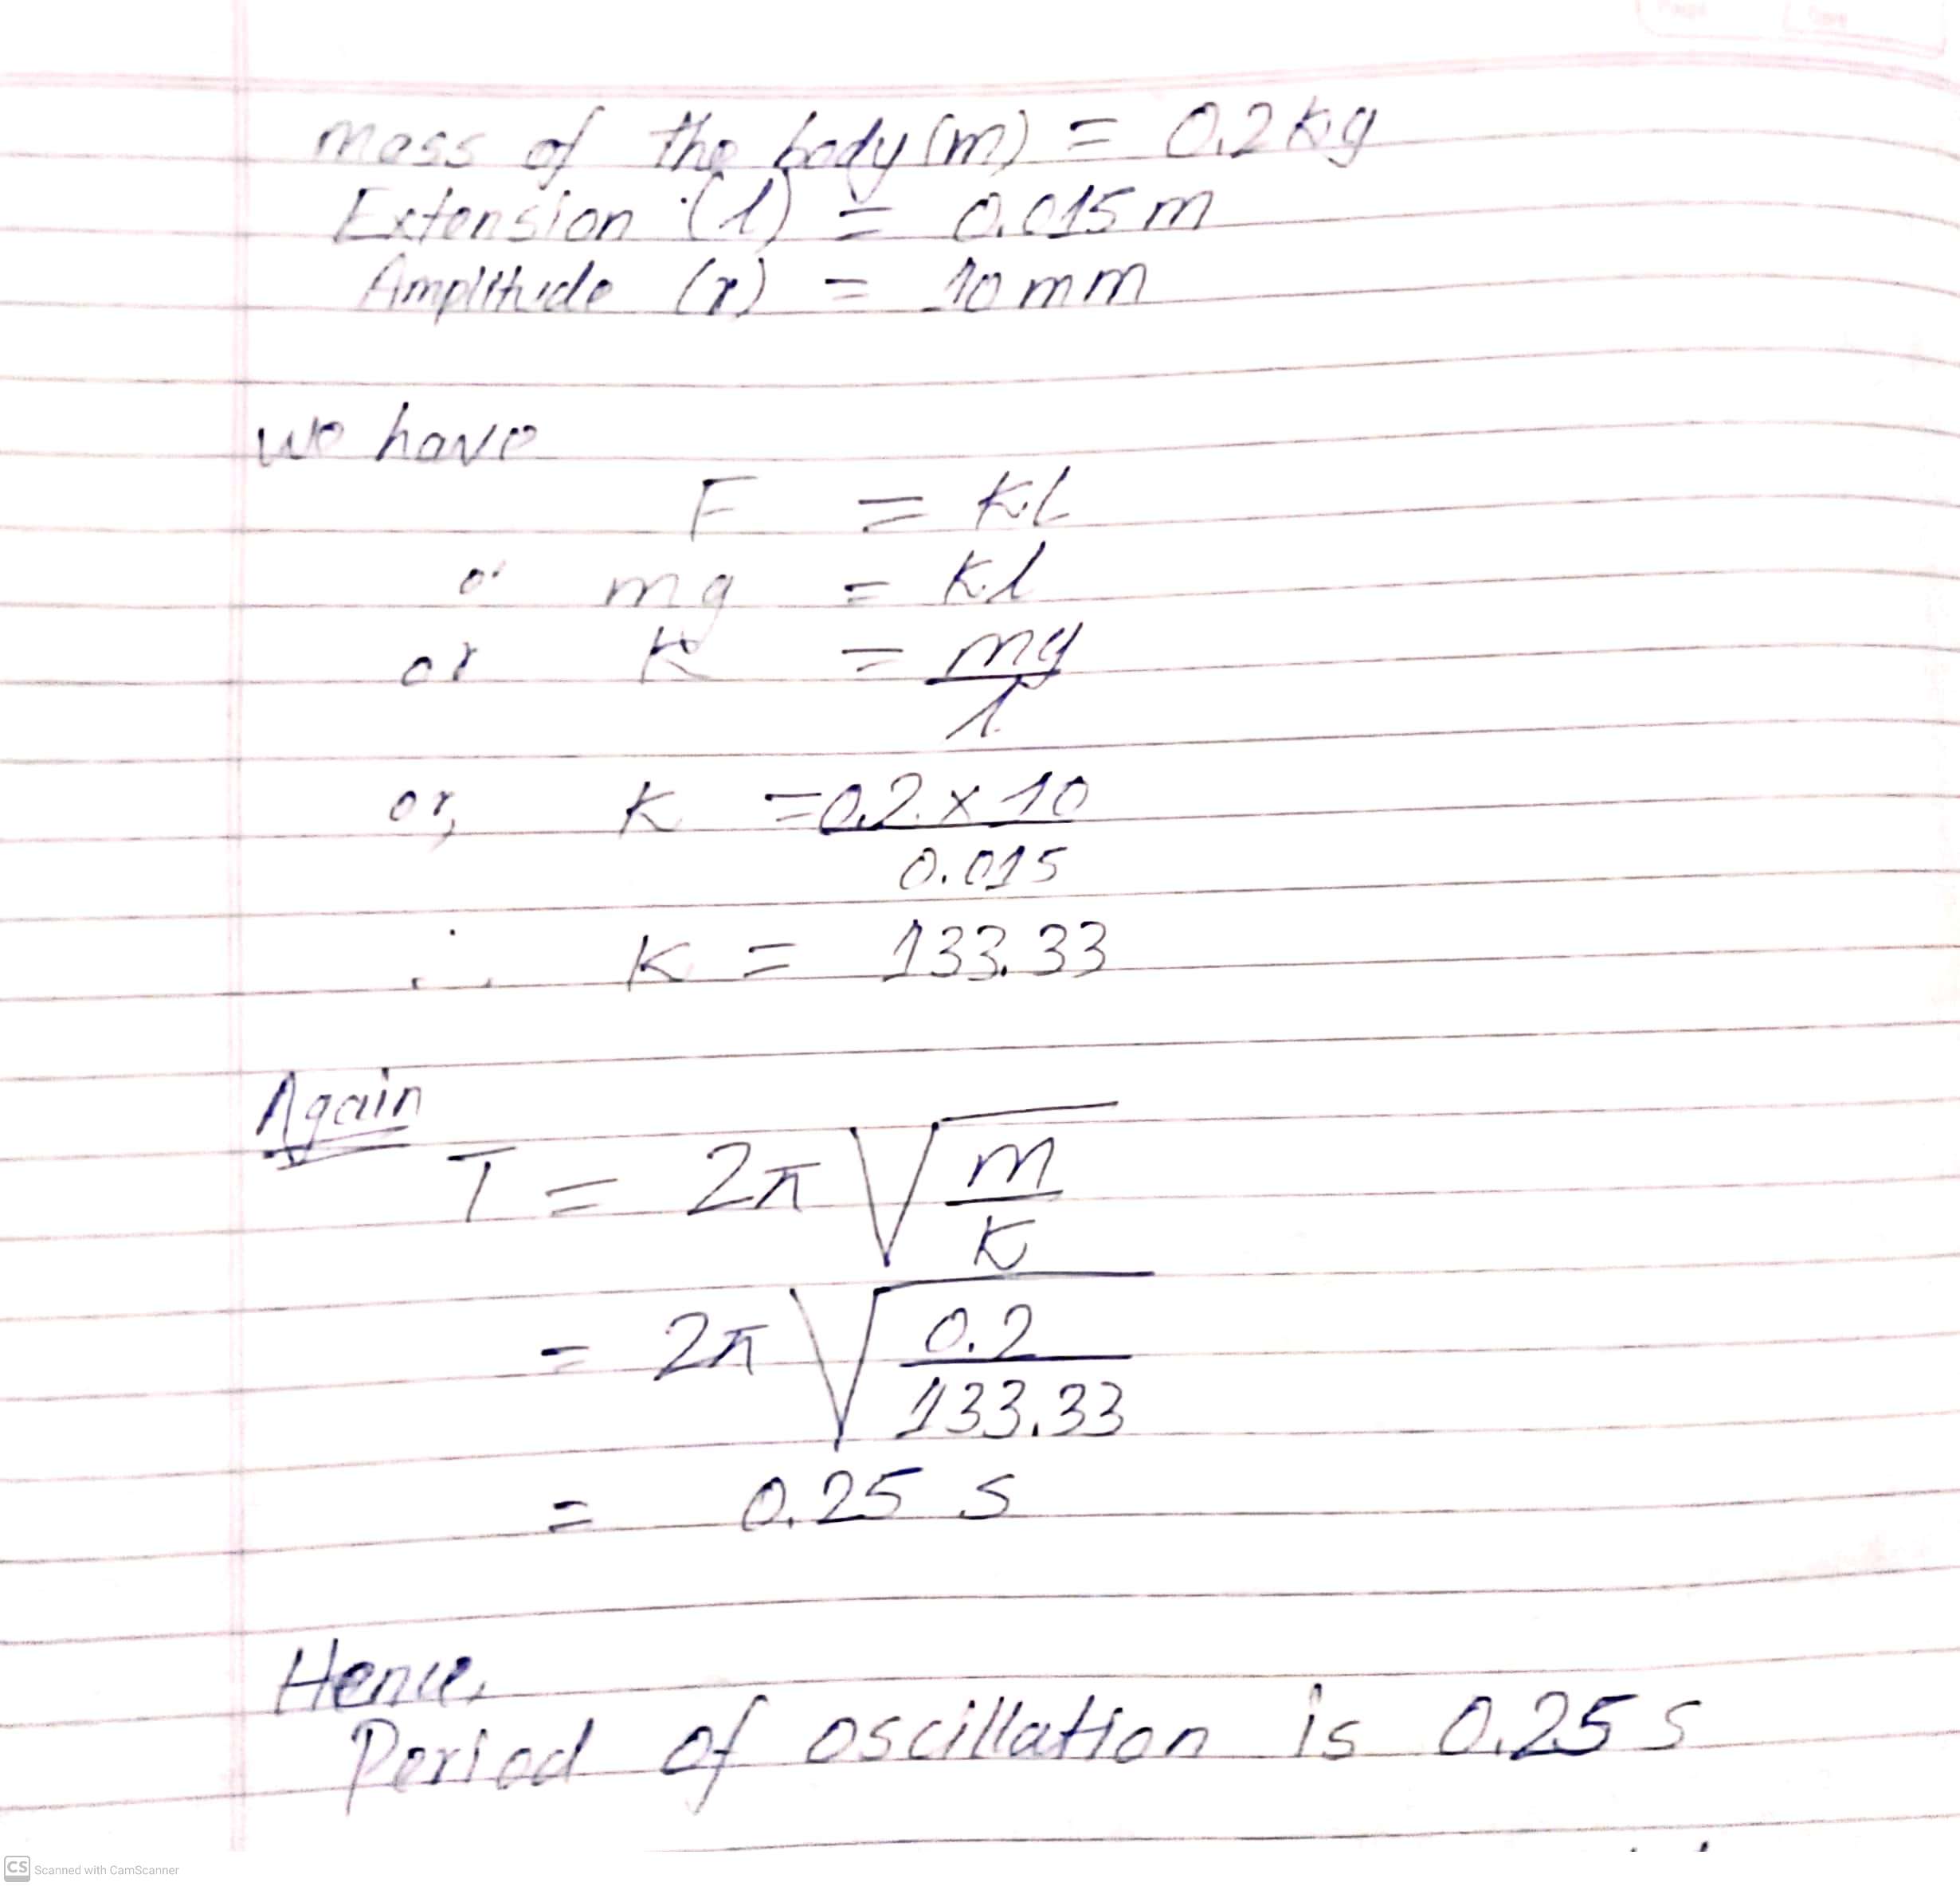 mass of the body (m) = 0.2 kg
Extension (l) = 0.015 m
Amplitude (r) = 10 mm
we have
F = k.l
or mg = k.l
or k = mg / l
or, k = 0.2 x 10 / 0.015
∴ k = 133.33
Again
T = 2π √(m / k)
= 2π √(0.2 / 133.33)
= 0.25 s
Hence,
Period of oscillation is 0.25 s
CS Scanned with CamScanner